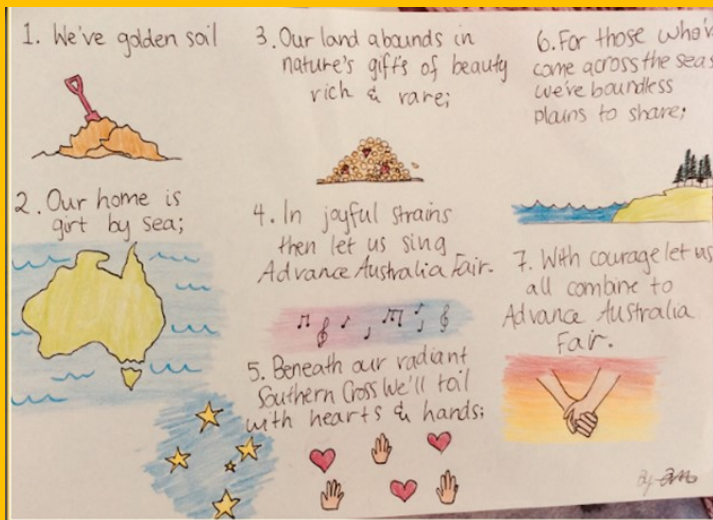 1. We've golden soil
2. Our home is
girt by sea;
3. Our land abounds in
nature's gifts of beauty
rich & rare;
4. In joyful strains
then let us sing
Advance Australia Fair.
5. Beneath our radiant
Southern Cross We'll toil
with hearts & hands;
6. For those who'v
come across the seas
we've boundless
plains to share;
7. With courage let us
all combine to
Advance Australia
Fair.
By